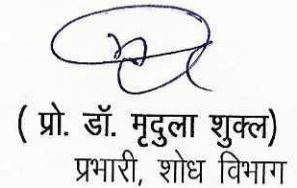 ( प्रो. डॉ. मृदुला शुक्ल)
प्रभारी, शोध विभाग